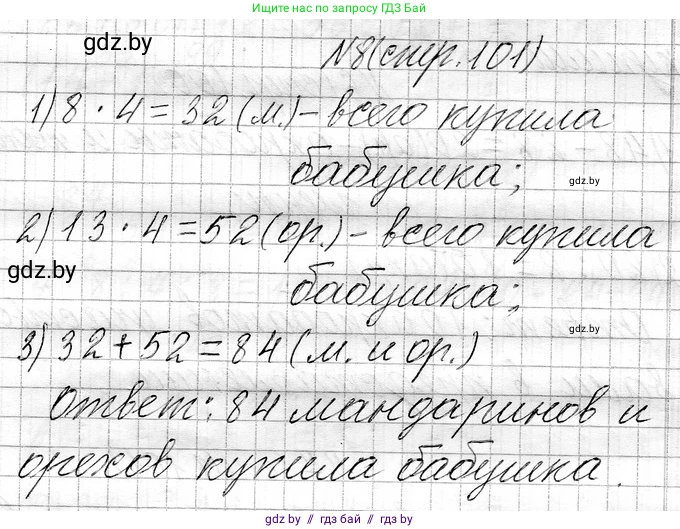 Ищите нас по запросу ГДЗ Бай
gdz.by
N8(стр. 101)
1) 8 · 4 = 32 (м.) - всего купила
бабушка;
gdz.by
2) 13 · 4 = 52 (ор.) - всего купила
gdz.by
бабушка;
gdz.by
3) 32 + 52 = 84 (м. и ор.)
Ответ: 84 мандаринов и
орехов купила бабушка.
gdz.by // гдз бай // гдз by